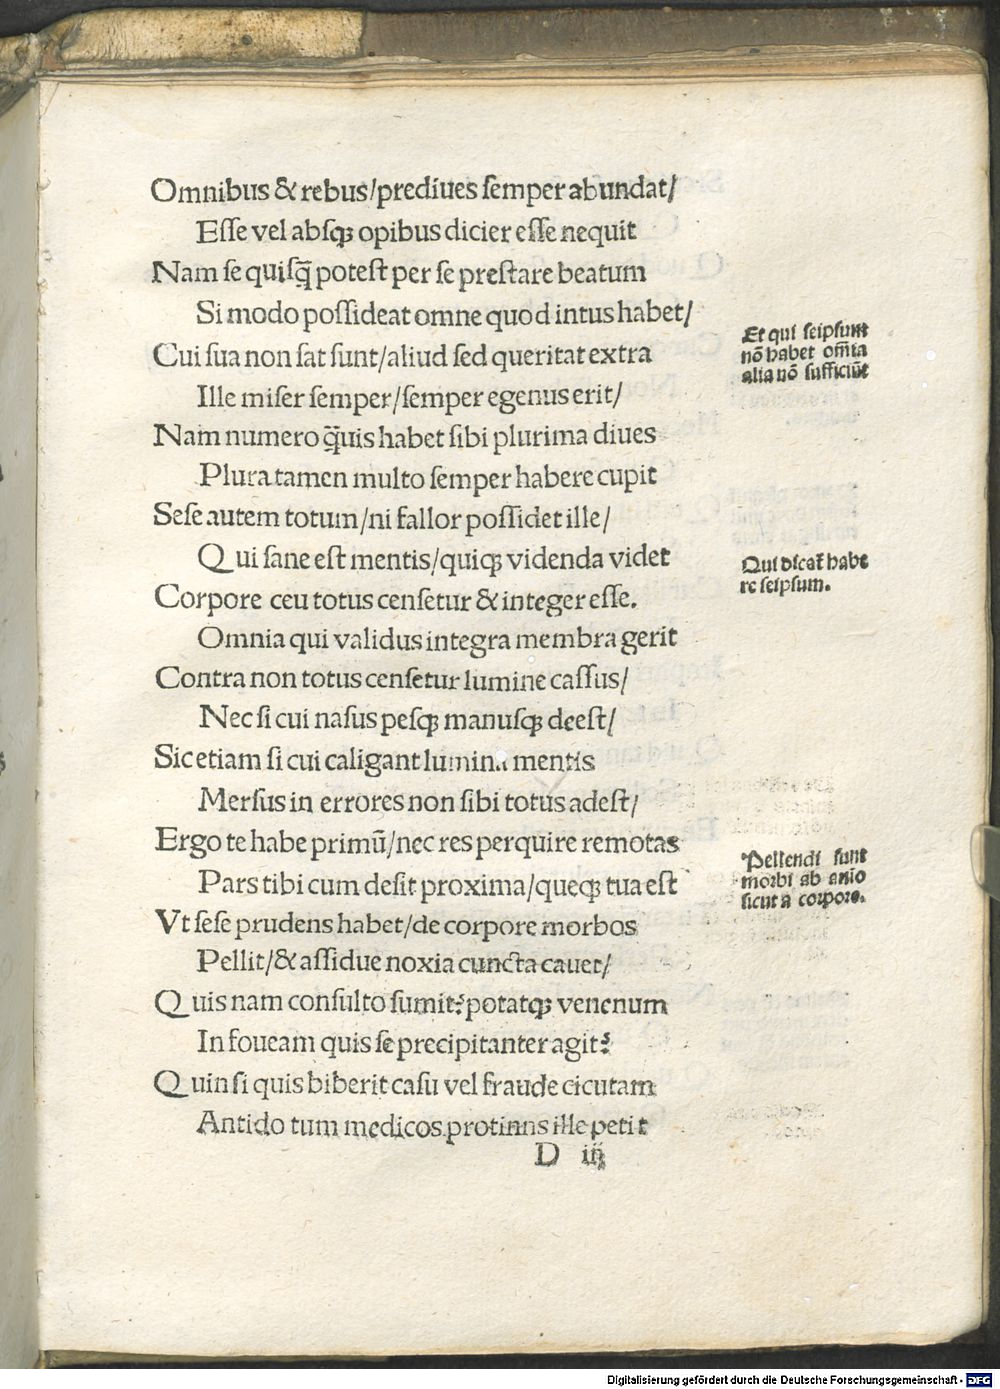 Omnibus & rebus/prediues semper abundat/
Esse vel absqꝫ opibus dicier esse nequit
Nam se quisq̄ potest per se prestare beatum
Si modo possideat omne quod intus habet/
Cui sua non sat sunt/aliud sed queritat extra
Ille miser semper/semper egenus erit/
Nam numero q̄uis habet sibi plurima diues
Plura tamen multo semper habere cupit
Sese autem totum/ni fallor possidet ille/
Qui sane est mentis/quiqꝫ videnda videt
Corpore ceu totus censetur & integer esse.
Omnia qui validus integra membra gerit
Contra non totus censetur lumine cassus/
Nec si cui nasus pesqꝫ manusqꝫ deest/
Sic etiam si cui caligant lumina mentis
Mersus in errores non sibi totus adest/
Ergo te habe primū/nec res perquire remotas
Pars tibi cum desit proxima/queqꝫ tua est
Vt sese prudens habet/de corpore morbos
Pellit/& assidue noxia cuncta cauet/
Quis nam consulto sumit?potatqꝫ venenum
In foueam quis se precipitanter agit?
Quin si quis biberit casu vel fraude cicutam
Antido tum medicos protinns ille petit
D iiij
Et qui seipsum
nō habet om̄ia
alia nō sufficiūt
Qui dicat̄ habe
re seipsum.
Pellendi sunt
morbi ab anīo
sicut a corpore.
Digitalisierung gefördert durch die Deutsche Forschungsgemeinschaft - DFG